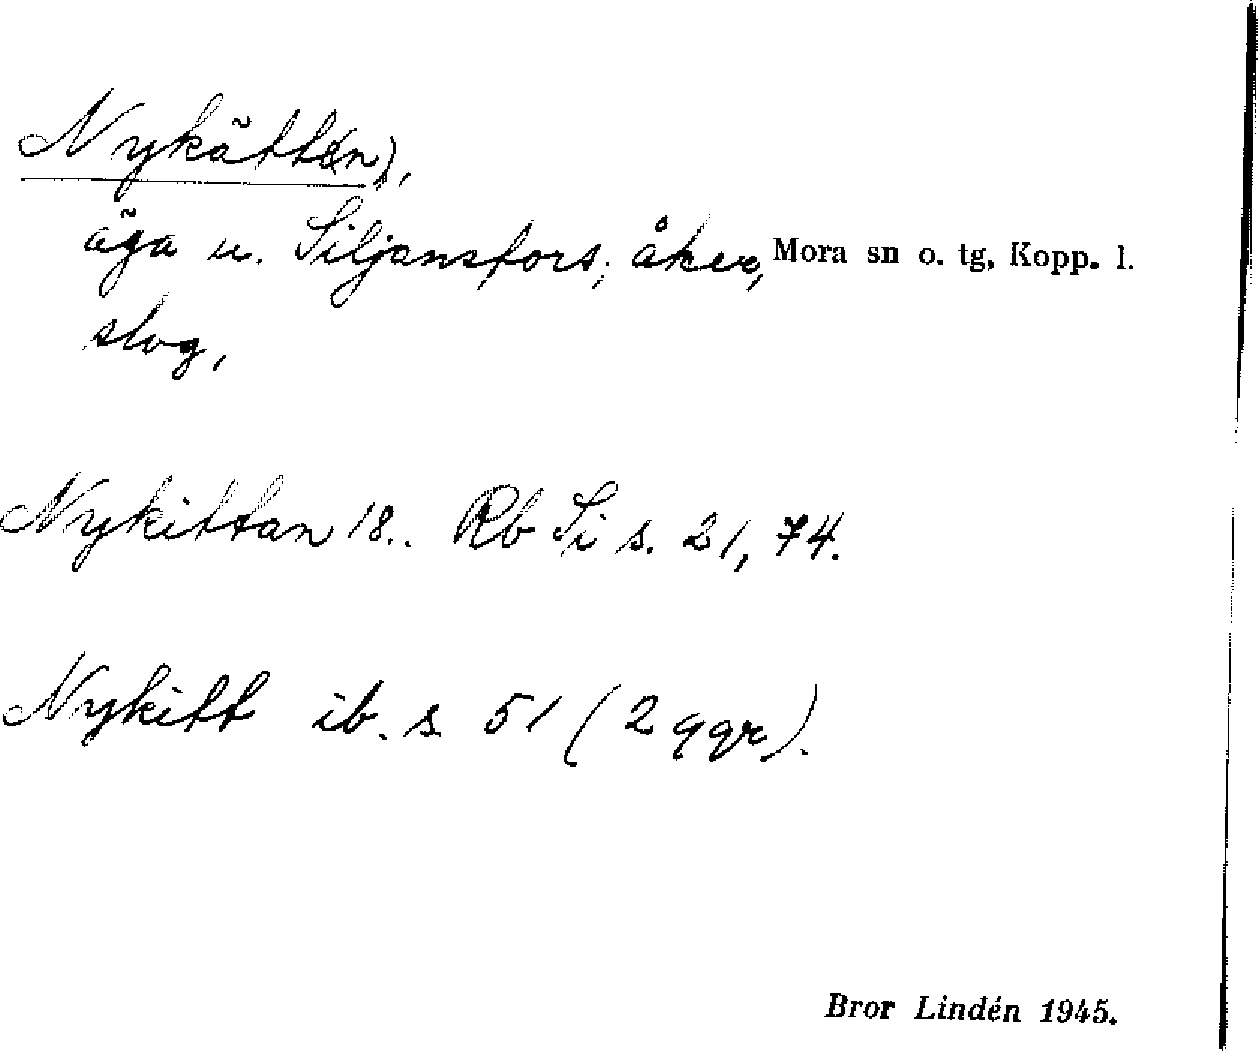 Nykätt(en),
äga u. Siljansfors; åker, Mora sn o. tg, Kopp. l.
slog,
Nykittan 18.. Rb Si s. 21, 74.
Nykitt ib. s. 51 (2 ggr).
Bror Lindén 1945.